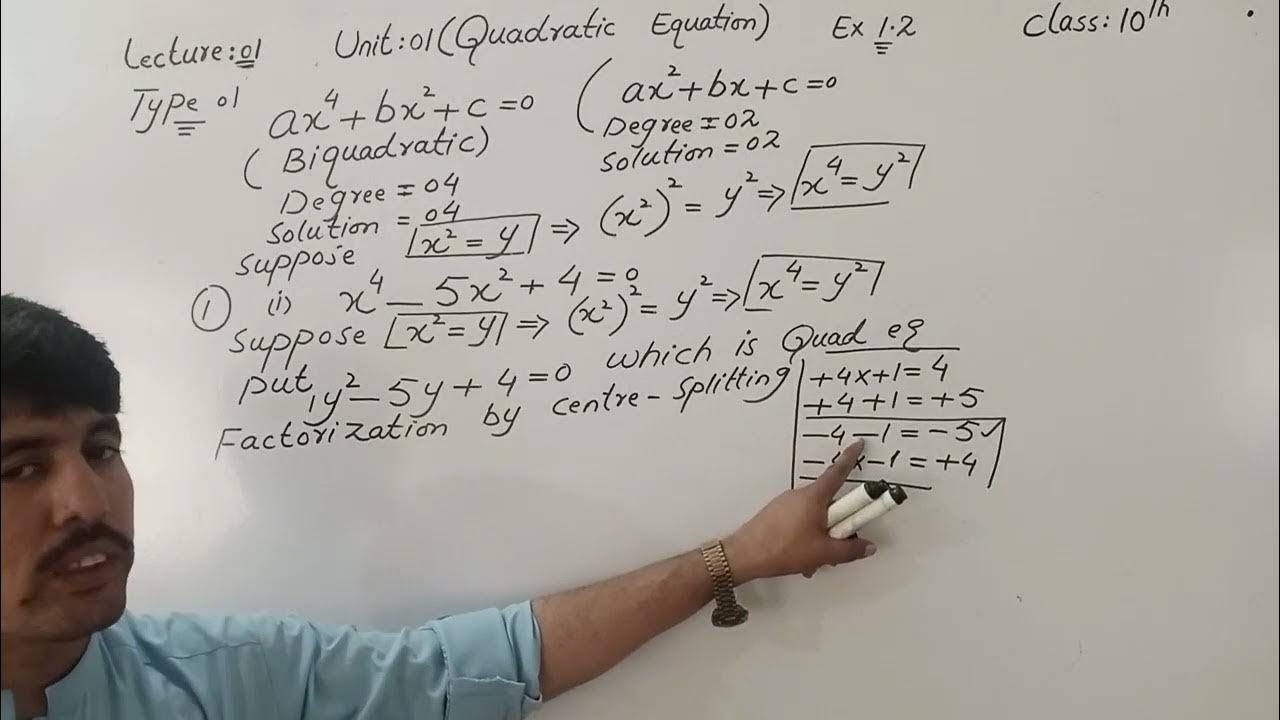 Lecture:01 Unit:01(Quadratic Equation) Ex 1.2 Class:10th
Type 01 ax⁴+bx²+c=0 (ax²+bx+c=0
(Biquadratic) Degree=02
Degree=04 Solution=02
Solution=04
Suppose x²=y ⇒ (x²)²=y² ⇒ x⁴=y²
① (i) x⁴-5x²+4=0
Suppose x²=y ⇒ (x²)²=y² ⇒ x⁴=y²
put, y²-5y+4=0 which is Quad eq
Factorization by centre-splitting
+4x+1=4
+4+1=+5
-4-1=-5✓
-4x-1=+4